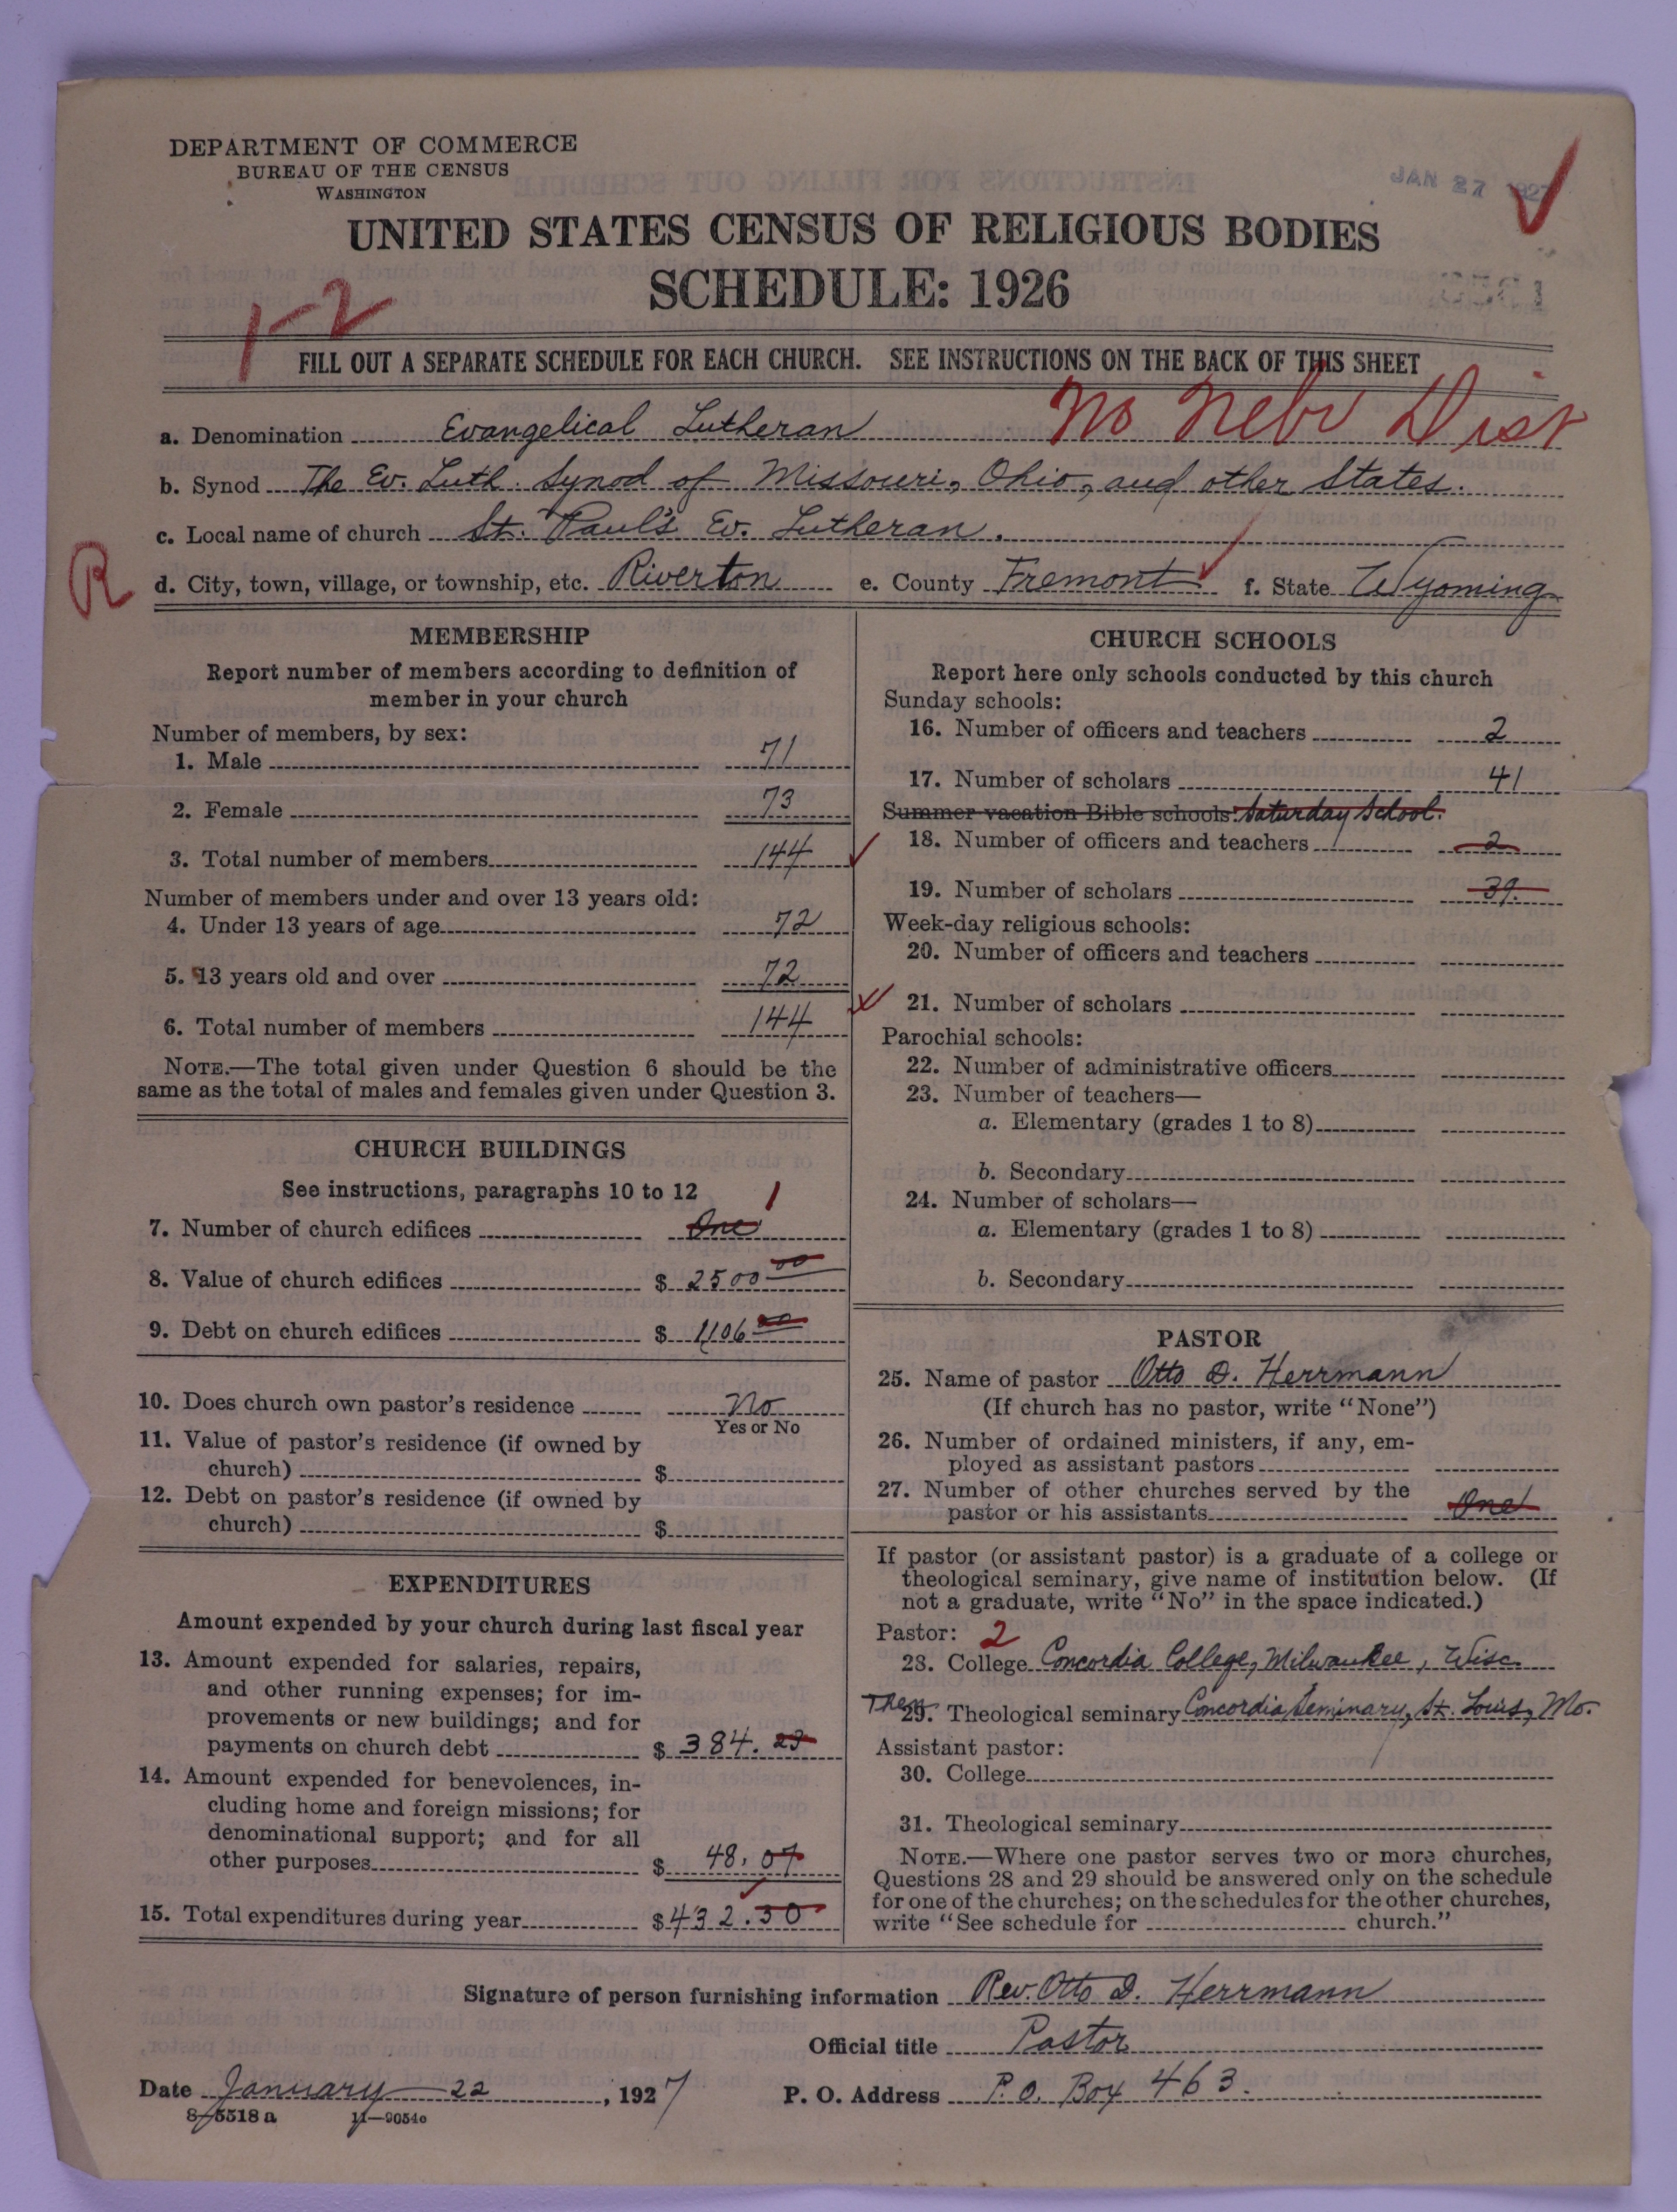 DEPARTMENT OF COMMERCE
BUREAU OF THE CENSUS
WASHINGTON
JAN 27 1927
UNITED STATES CENSUS OF RELIGIOUS BODIES
SCHEDULE: 1926
1-2
FILL OUT A SEPARATE SCHEDULE FOR EACH CHURCH. SEE INSTRUCTIONS ON THE BACK OF THIS SHEET
No Nebr Dist
a. Denomination Evangelical Lutheran
b. Synod The Ev. Luth. Synod of Missouri, Ohio, and other States.
c. Local name of church St. Paul's Ev. Lutheran.
R
d. City, town, village, or township, etc. Riverton e. County Fremont f. State Wyoming
MEMBERSHIP
Report number of members according to definition of
member in your church
Number of members, by sex:
1. Male 71
2. Female 73
3. Total number of members 144
Number of members under and over 13 years old:
4. Under 13 years of age 72
5. 13 years old and over 72
6. Total number of members 144
NOTE.—The total given under Question 6 should be the
same as the total of males and females given under Question 3.
CHURCH BUILDINGS
See instructions, paragraphs 10 to 12
7. Number of church edifices One 1
8. Value of church edifices $ 2500 00
9. Debt on church edifices $ 1106 00
10. Does church own pastor's residence No
Yes or No
11. Value of pastor's residence (if owned by
church) $
12. Debt on pastor's residence (if owned by
church) $
EXPENDITURES
Amount expended by your church during last fiscal year
13. Amount expended for salaries, repairs,
and other running expenses; for im-
provements or new buildings; and for
payments on church debt $ 384. 23
14. Amount expended for benevolences, in-
cluding home and foreign missions; for
denominational support; and for all
other purposes $ 48. 07
15. Total expenditures during year $ 432.30
CHURCH SCHOOLS
Report here only schools conducted by this church
Sunday schools:
16. Number of officers and teachers 2
17. Number of scholars 41
Summer vacation Bible schools: Saturday School.
18. Number of officers and teachers 2
19. Number of scholars 39.
Week-day religious schools:
20. Number of officers and teachers
21. Number of scholars
Parochial schools:
22. Number of administrative officers
23. Number of teachers—
a. Elementary (grades 1 to 8)
b. Secondary
24. Number of scholars—
a. Elementary (grades 1 to 8)
b. Secondary
PASTOR
25. Name of pastor Otto D. Herrmann
(If church has no pastor, write "None")
26. Number of ordained ministers, if any, em-
ployed as assistant pastors
27. Number of other churches served by the
pastor or his assistants One
If pastor (or assistant pastor) is a graduate of a college or
theological seminary, give name of institution below. (If
not a graduate, write "No" in the space indicated.)
Pastor: 2
28. College Concordia College, Milwaukee, Wisc.
Then 29. Theological seminary Concordia Seminary, St. Louis, Mo.
Assistant pastor:
30. College
31. Theological seminary
NOTE.—Where one pastor serves two or more churches,
Questions 28 and 29 should be answered only on the schedule
for one of the churches; on the schedules for the other churches,
write "See schedule for church."
Signature of person furnishing information Rev. Otto D. Herrmann
Official title Pastor
Date January 22, 1927 P. O. Address P. O. Box 463.
8-5518 a 11-9054c